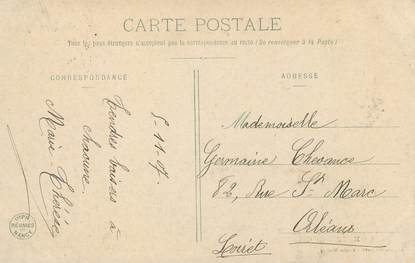 CARTE POSTALE
Tous les pays étrangers n'acceptent pas la correspondance au recto (Se renseigner à la Poste)
CORRESPONDANCE
ADRESSE
5-11-07.
Tendres baisers à
chacune
Marie-Thérèse
Mademoiselle
Germaine Chevance
82, Rue St Marc
Orléans
Loiret
IMPR
RÉUNIES
NANCY